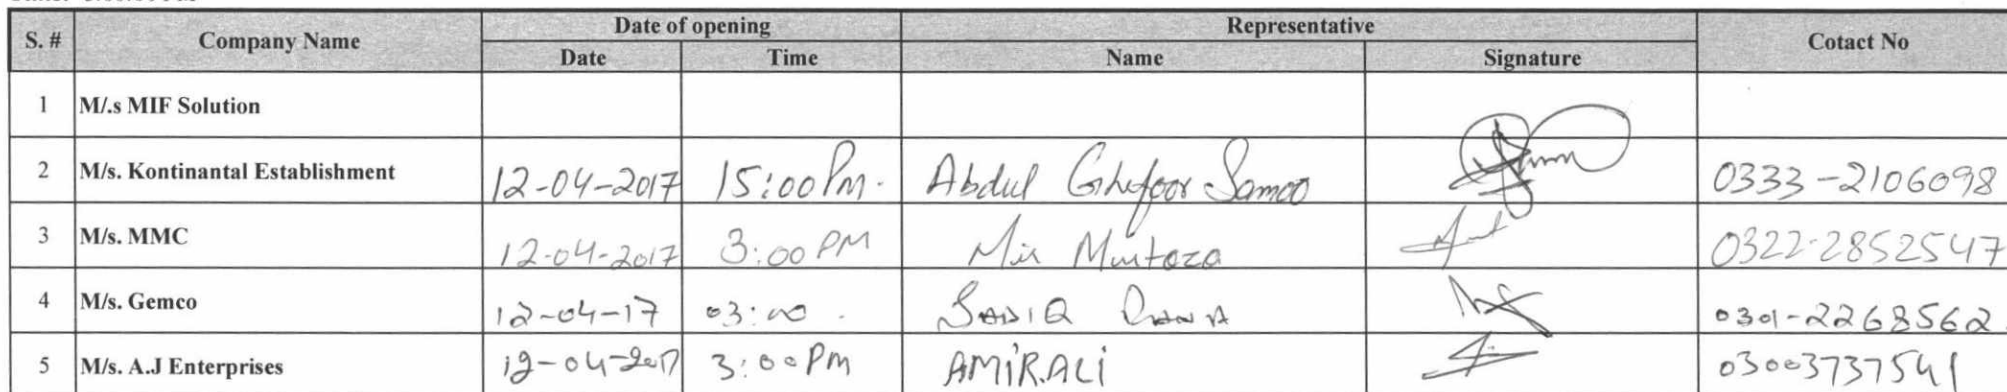 S. # Company Name Date of opening Representative Cotact No
Date Time Name Signature
1 M/.s MIF Solution
2 M/s. Kontinantal Establishment 12-04-2017 15:00 Pm. Abdul Ghafoor Samoo 0333-2106098
3 M/s. MMC 12-04-2017 3:00 PM Mir Murtaza 0322-2852547
4 M/s. Gemco 12-04-17 03:00 . SADIQ 0301-2268562
5 M/s. A.J Enterprises 12-04-2017 3:00 Pm AMIR.ALI 03003737541